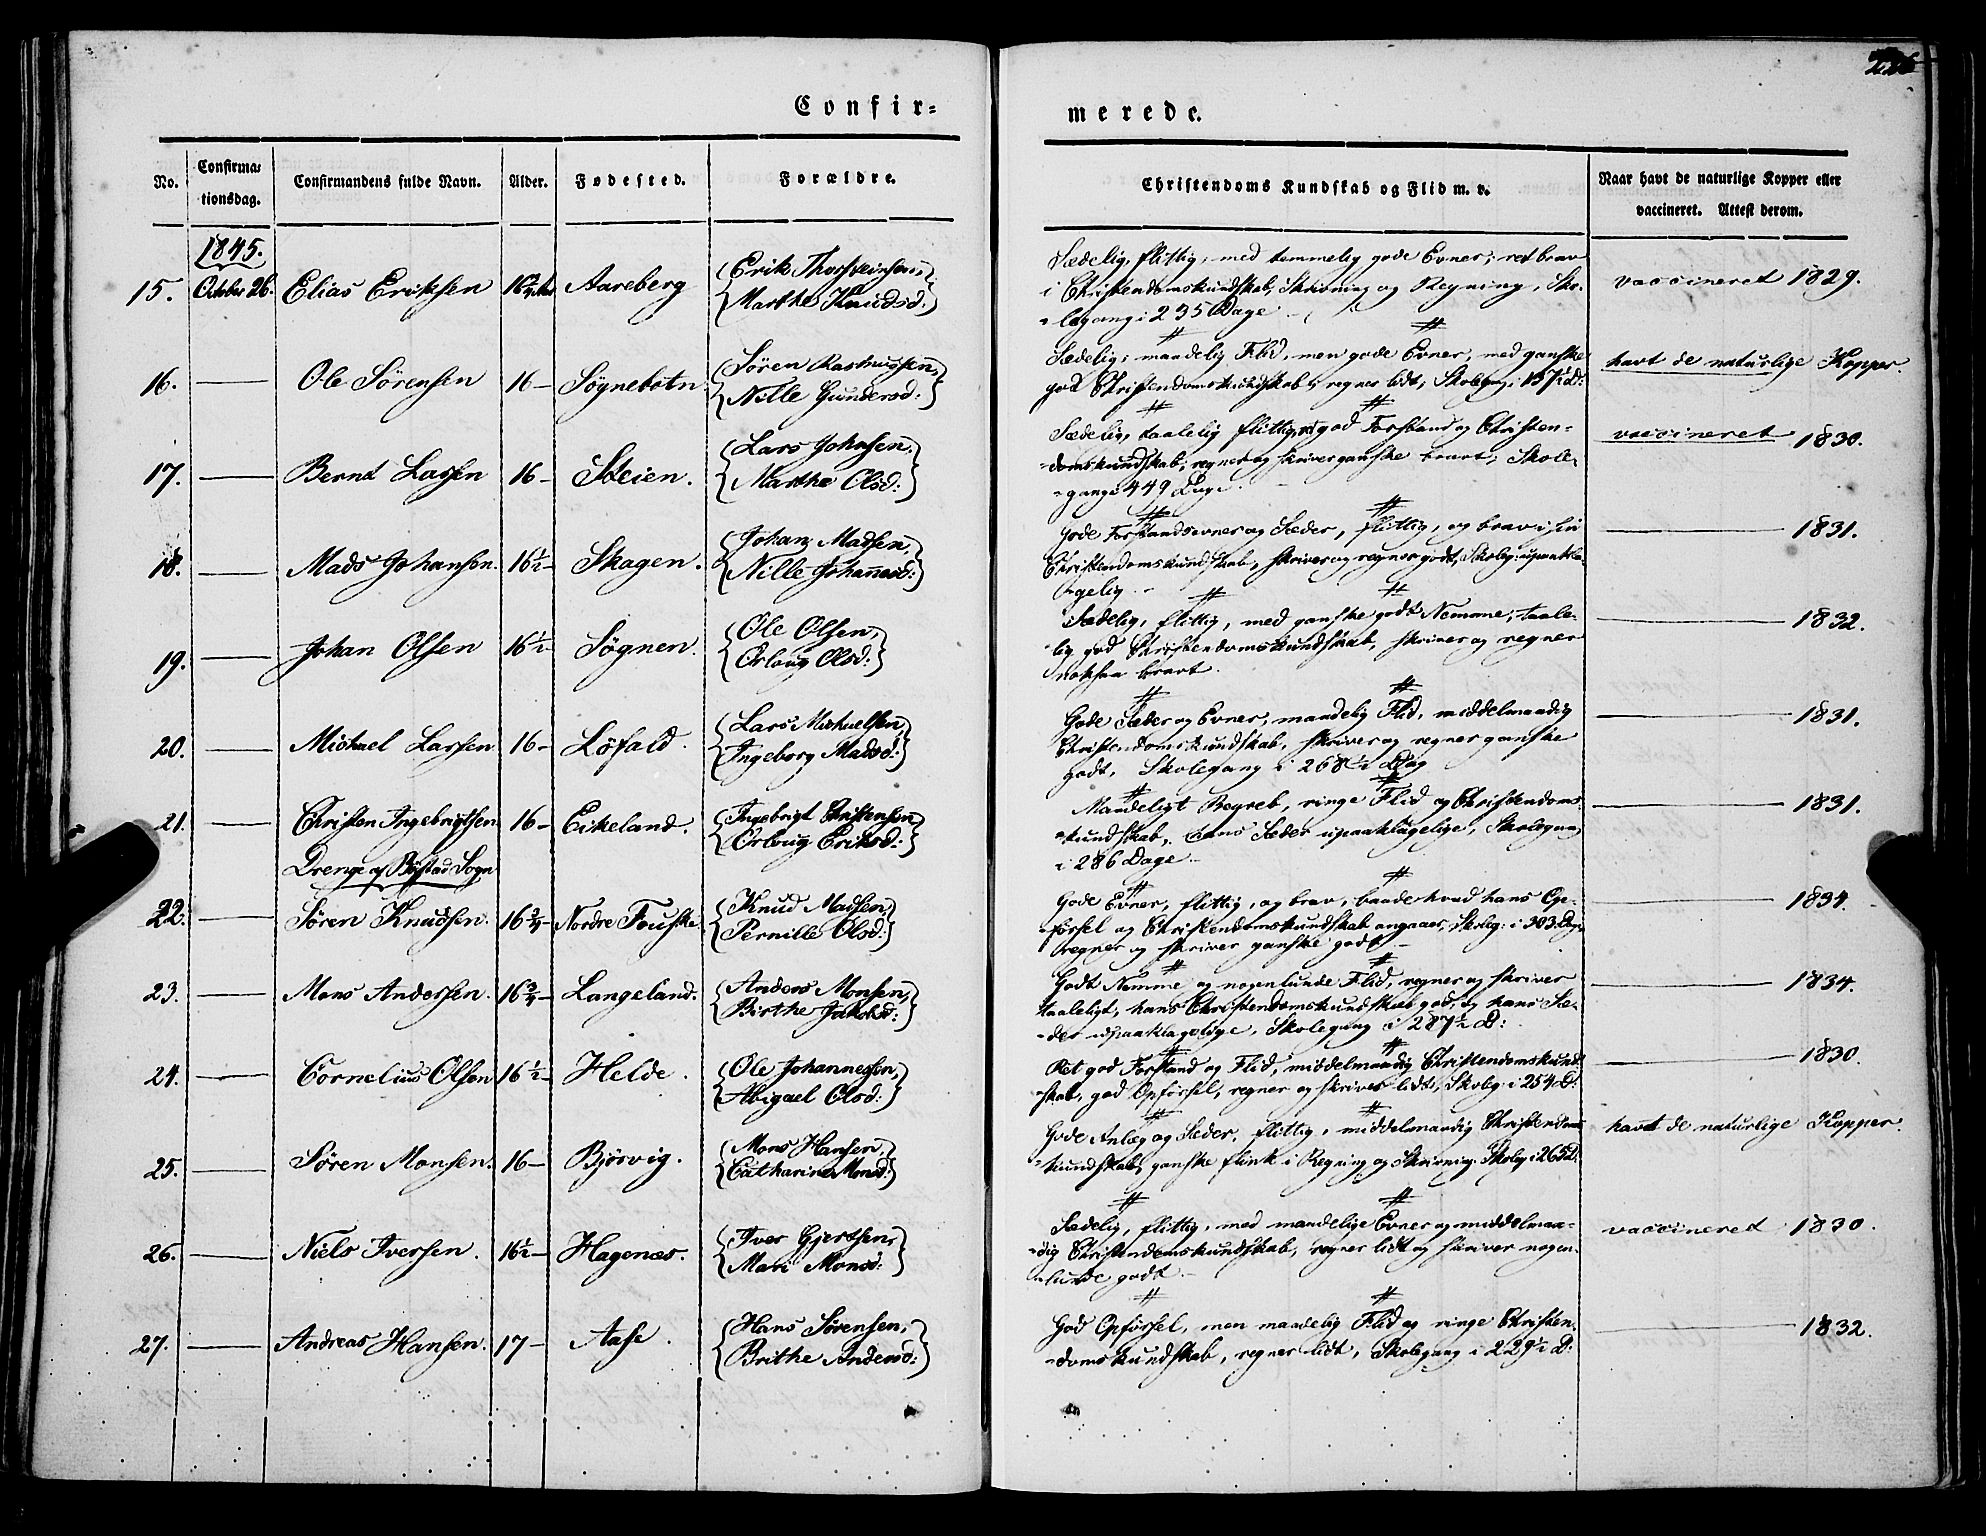 226
Confir=
merede.
No.
Confirma=
tionsdag.
Confirmandens fulde Navn.
Alder.
Fødested.
Forældre.
Christendoms Kundskab og Flid m. v.
Naar havt de naturlige Kopper eller
vaccineret. Attest derom.
1845.
15. October 26. Elias Eriksen 16 3/4 Aareberg
Erik Thorsteinsen,
Marthe Knudsd:
Sædelig, flittig, med temmelig gode Evner; ret brav
i Christendomskundskab, Skrivning og Regning, Sko-
-legang i 235 Dage
vaccineret 1829.
16. — Ole Sörensen 16 — Søgnebotn.
Sören Rasmussen,
Nille Gundersd:
Sædelig; maadelig Flid, men gode Evner, med ganske
god Christendomskundskab, regner lidt; Skolegang i 157 1/2 D:
havt de naturlige Kopper.
17. — Bernt Larsen 16 — Steien.
Lars Johnsen,
Marthe Olsd:
Sædelig, taalelig flittig, ret god Forstand og Christen-
-domskundskab; regner og skriver ganske bravt; Skole-
-gang i 449 Dage.
vaccineret 1830.
18. — Mads Johansen. 16 1/2 — Skagen.
Johan Madsen,
Nille Johannesd:
Gode Forstandsevner og Sæder, flittig, og brav i sin
Christendomskundskab, skriver og regner godt, Skoleg: upaakla-
-gelig.
— 1831.
19. — Johan Olsen 16 1/2 Søgnen.
Ole Olsen,
Orloug Olsd:
Sædelig, flittig, med ganske godt Nemme; taale-
-lig god Christendomskundskab, skriver og regner
noksaa bravt.
— 1832.
20. — Michael Larsen 16 — Löfald.
Lars Michaelsen,
Ingeborg Madsd:
Gode Sæder og Evner, maadelig Flid, middelmaadig
Christendomskundskab, skriver og regner ganske
godt, Skolegang i 268 1/2 Dag
— 1831.
21. — Christen Ingebrigtsen 16 — Eikeland.
Ingebrigt Christensen,
Orloug Eriksd:
Maadeligt Begreb, ringe Flid og Christendoms-
-kundskab, hans Sæder upaaklagelige, Skolegang
i 286 Dage.
— 1831.
Drenge af Bøstad Sogn
22. — Sören Knudsen. 16 3/4 — Nordre Fouske.
Knud Madsen,
Pernille Olsd:
Gode Evner, flittig, og brav, baade hvad hans Op-
-førsel og Christendomskundskab angaaer, Skoleg: i 303 Dage,
regner og skriver ganske godt —
— 1834.
23. — Mons Andersen. 16 3/4 — Langeland.
Anders Monsen,
Birthe Jakobsd:
Godt Nemme og nogenlunde Flid, regner og skriver
taaleligt, hans Christendomskundskab god, og hans Sæ-
-der upaaklagelige, Skolegang i 287 1/2 D:
— 1834.
24. — Cornelius Olsen 16 1/2 — Helde.
Ole Johannessen,
Abigael Olsd:
Ret god Forstand og Flid, middelmaadig Christendomskund-
-skab, god Opførsel, regner og skriver lidt, Skoleg: i 254 D:
— 1830.
25. — Sören Monsen. 16 — Bjørvig.
Mons Hansen,
Catharina Monsd:
Gode Anlæg og Sæder, flittig, middelmaadig Christendoms-
-kundskab, ganske flink i Regning og Skrivning. Skoleg: i 265 D:
havt de naturlige Kopper.
26. — Niels Iversen. 16 1/2 — Hagenæs.
Iver Gjertsen,
Mari Monsd:
Sædelig, flittig, med maadelige Evner og middelmaa-
-dig Christendomskundskab, regner lidt og skriver nogen-
-lunde godt. —
vaccineret 1830.
27. — Andreas Hansen. 17 — Aase.
Hans Sörensen,
Brithe Andersd:
God Opførsel, men maadelig Flid og ringe Christen-
-domskundskab, regner lidt, Skolegang i 229 1/2 D:
— 1832.